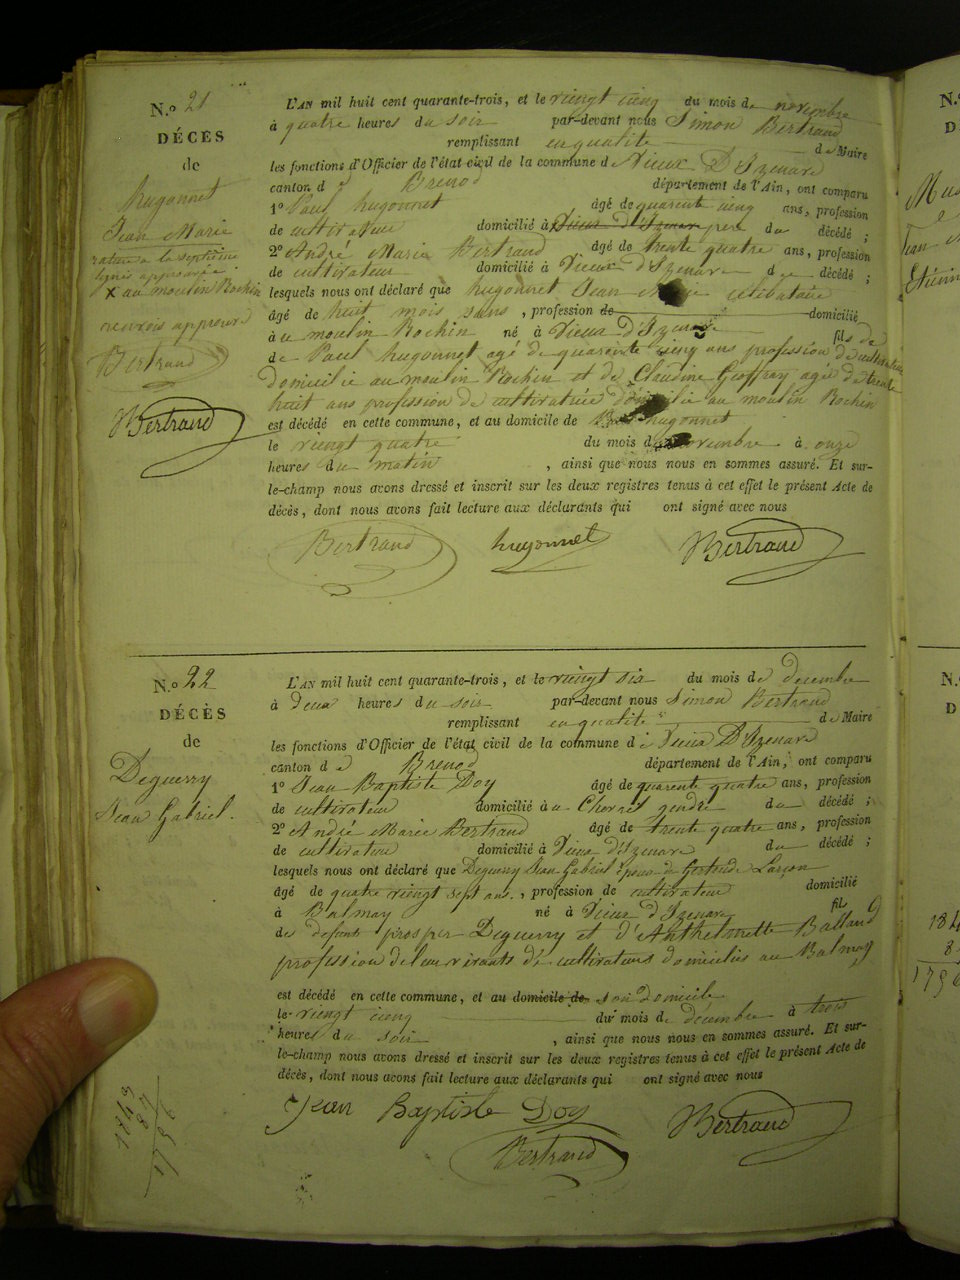 N.o 21
DÉCÈS
de
hugonnet
Jean Marie
rature a la septième
ligne approuvée
X au moulin Rochin
renvois approuvé
Bertrand
Bertrand
L'AN mil huit cent quarante-trois, et le vingt cinq du mois de novembre
à quatre heures du soir par-devant nous Simon Bertrand
remplissant en qualité de Maire
les fonctions d'Officier de l'état civil de la commune de Vieux D'Izenave
canton de Brenod département de l'Ain, ont comparu
1o Paul hugonnet âgé de quarente cinq ans, profession
de cultivateur domicilié à Vieux d'Izenave père du décédé ;
2o André Marie Bertrand âgé de trente quatre ans, profession
de cultivateur domicilié à Vieux d'Izenave d décédé ;
lesquels nous ont déclaré que hugonnet Jean Marie celibataire
âgé de huit mois sans, profession de domicilié
à au moulin Rochin né à Vieux d'Izenave fils de
de Paul hugonnet agé de quarente cinq ans profession de cultivateur
domicilie au moulin Rochin et de Claudine Geoffray agée de trente
huit ans profession de cultivatrice domicilié au moulin Rochin
est décédé en cette commune, et au domicile de hugonnet
le vingt quatre du mois de novembre à onze
heures du matin, ainsi que nous nous en sommes assuré. Et sur-
le-champ nous avons dressé et inscrit sur les deux registres tenus à cet effet le présent Acte de
décès, dont nous avons fait lecture aux déclarants qui ont signé avec nous
Bertrand hugonnet Bertrand
N.o 22
DÉCÈS
de
Deguerry
Jean Gabriel.
L'AN mil huit cent quarante-trois, et le vingt six du mois de decembre
à deux heures du soir par-devant nous Simon Bertrand
remplissant en qualité de Maire
les fonctions d'Officier de l'état civil de la commune de Vieux D'Izenave
canton de Brenod département de l'Ain, ont comparu
1o Jean Baptiste Doy âgé de quarente quatre ans, profession
de cultivateur domicilié à gendre du décédé ;
2o André Marie Bertrand âgé de trente quatre ans, profession
de cultivateur domicilié à Vieux d'Izenave du décédé ;
lesquels nous ont déclaré que Deguerry Jean Gabriel époux de Gertrude
âgé de quatre vingt sept ans, profession de cultivateur domicilié
à Balmay né à Vieux d'Izenave fils
des defunts prosper Deguerry et d'Anthelmette Balland
profession de leur vivants de cultivateurs domicilies au Balmay
est décédé en cette commune, et au domicile de son domicile
le vingt cinq du mois de decembre à trois
heures du soir, ainsi que nous nous en sommes assuré. Et sur-
le-champ nous avons dressé et inscrit sur les deux registres tenus à cet effet le présent Acte de
décès, dont nous avons fait lecture aux déclarants qui ont signé avec nous
Jean Baptiste Doy Bertrand
Bertrand
1843
87
1756